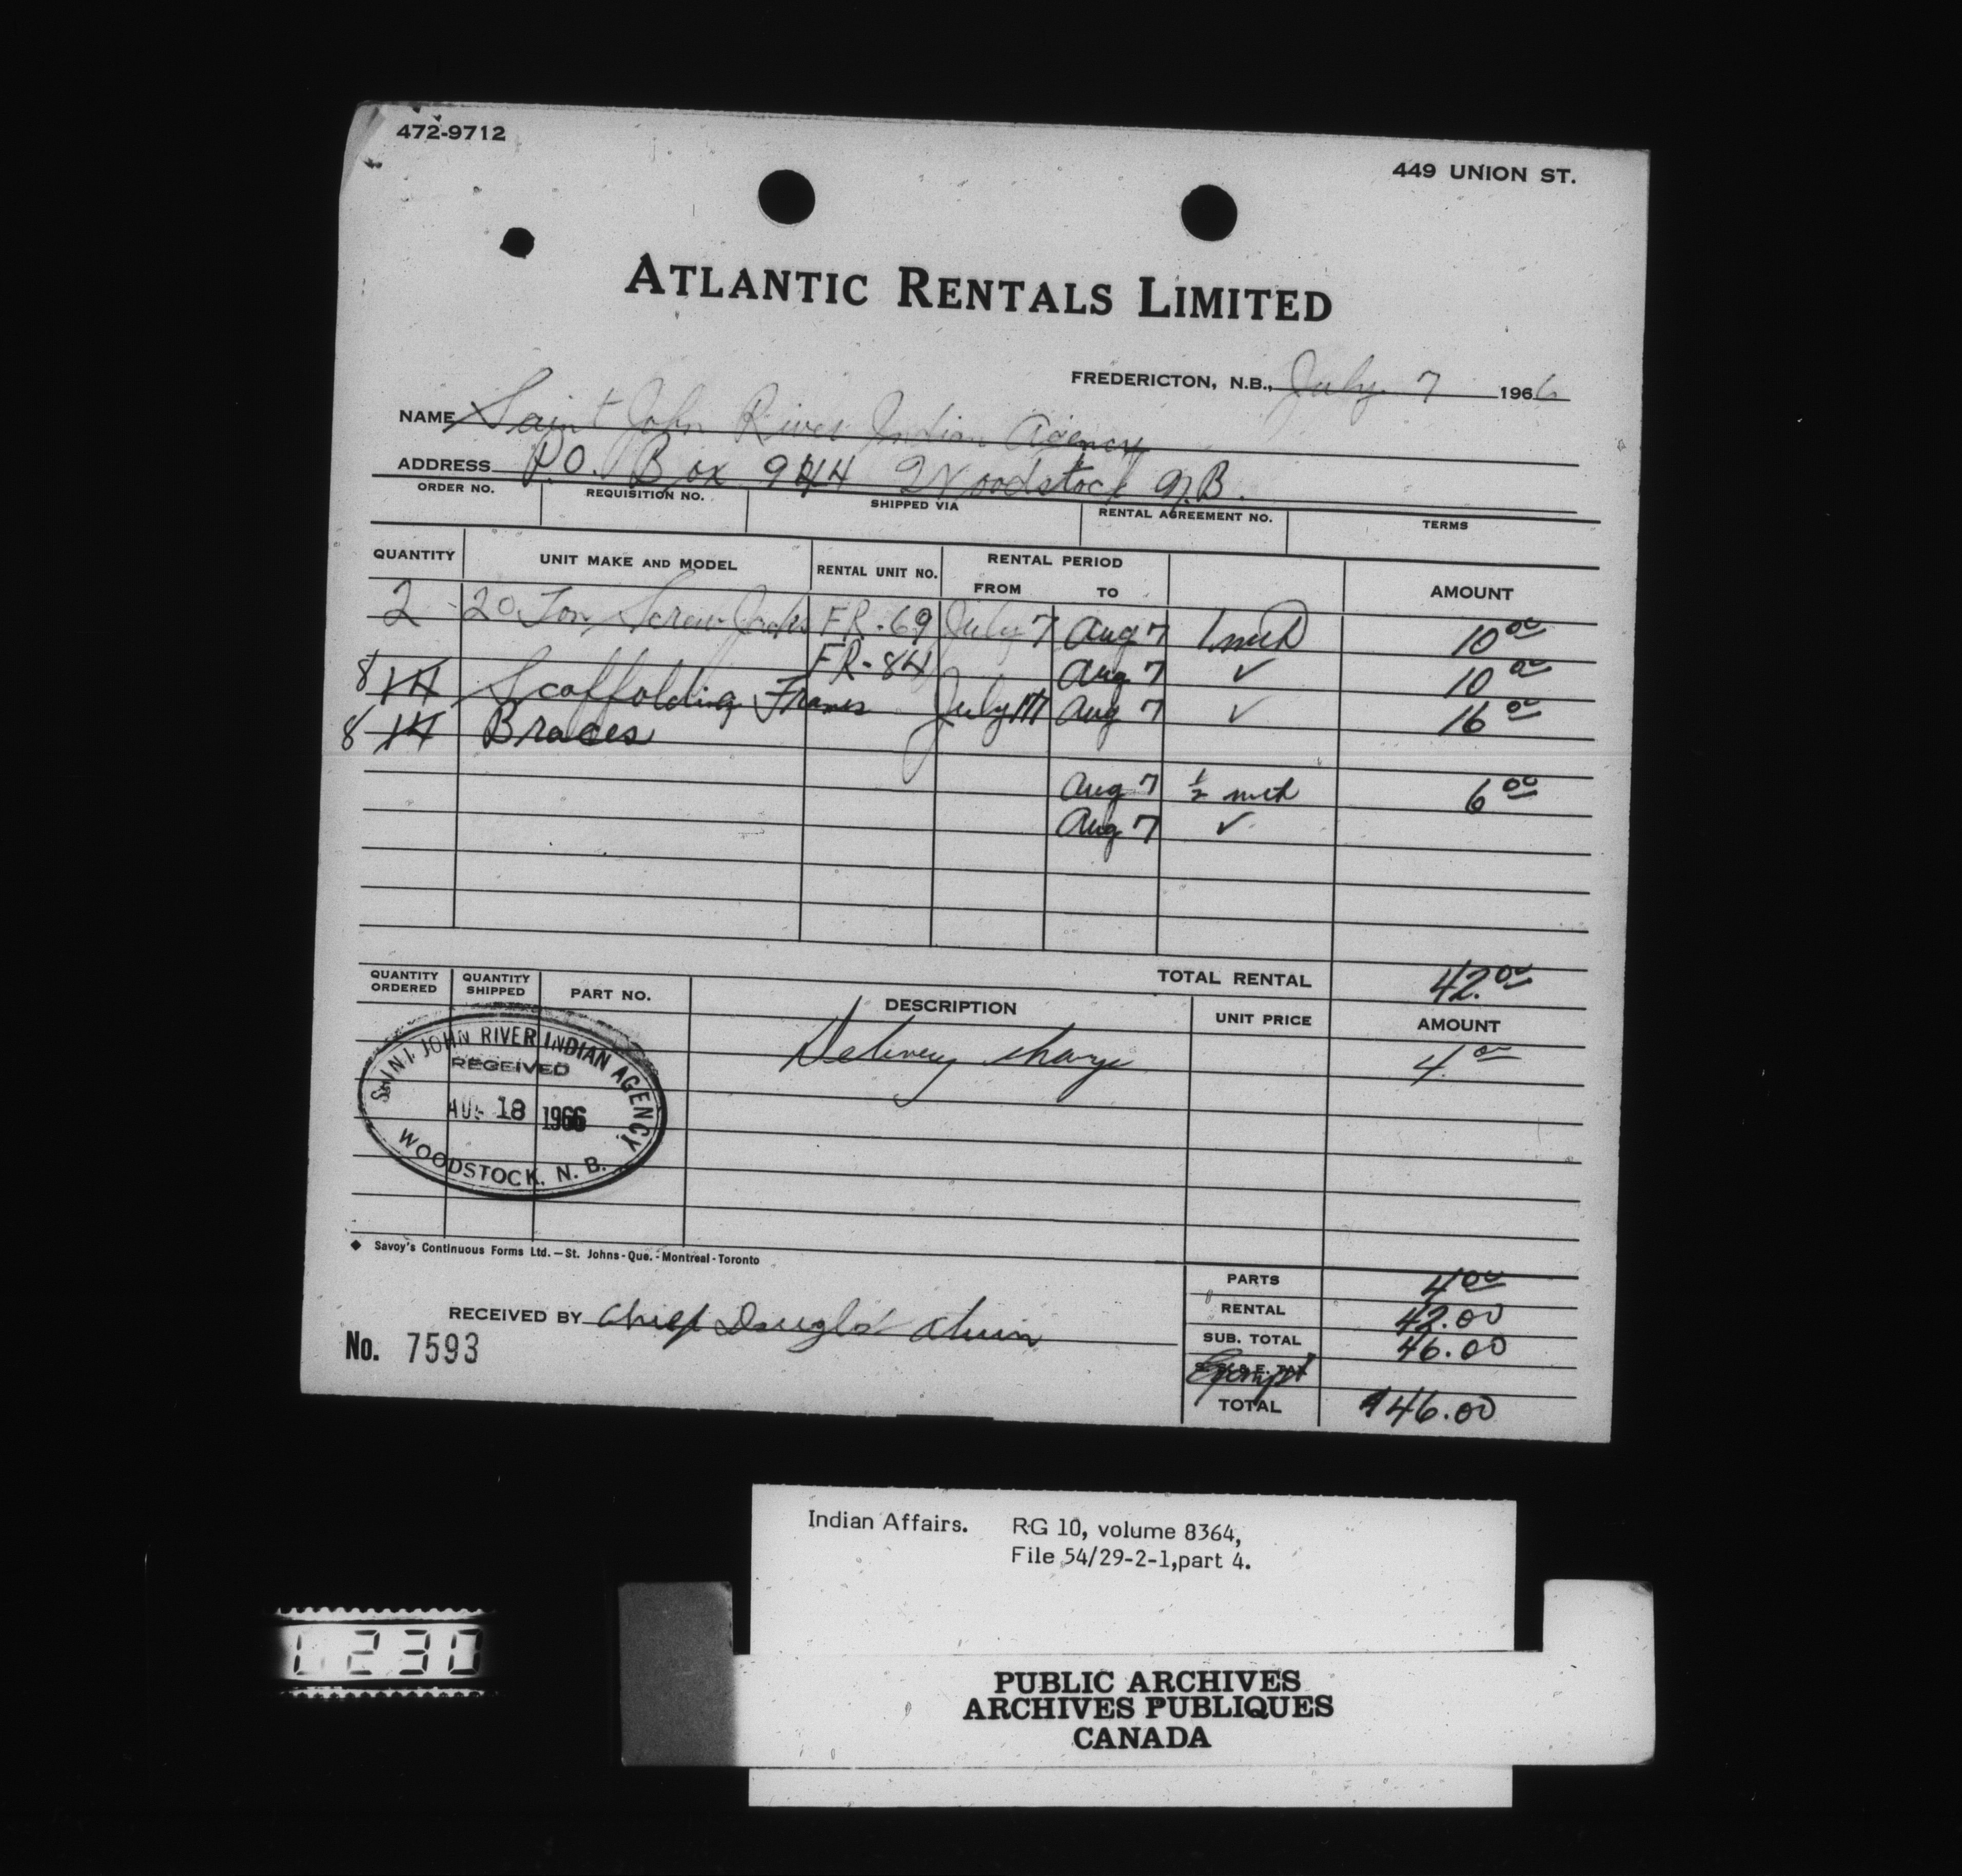 472-9712
449 UNION ST.
ATLANTIC RENTALS LIMITED
FREDERICTON, N.B., July 7 1966
NAME Saint John River Indian Agency
ADDRESS P.O. Box 944 Woodstock N.B.
ORDER NO. REQUISITION NO. SHIPPED VIA RENTAL AGREEMENT NO. TERMS
QUANTITY UNIT MAKE AND MODEL RENTAL UNIT NO. RENTAL PERIOD FROM TO AMOUNT
2 20 Ton Screw Jacks FR-69 July 7 Aug 7 1 mth 10 00
FR-84 Aug 7 ✓ 10 00
8 14 Scaffolding Frames July Aug 7 ✓ 16 00
8 14 Braces
Aug 7 ½ mth 6 00
Aug 7 ✓
TOTAL RENTAL 42.00
QUANTITY ORDERED QUANTITY SHIPPED PART NO. DESCRIPTION UNIT PRICE AMOUNT
Delivery charge 4.00
SAINT JOHN RIVER INDIAN AGENCY
RECEIVED
AUG 18 1966
WOODSTOCK, N. B.
◆ Savoy's Continuous Forms Ltd. — St. Johns - Que. - Montreal - Toronto
PARTS 4 00
RENTAL 42.00
SUB. TOTAL 46.00
Exempt
TOTAL $46.00
RECEIVED BY Chief Douglas
No. 7593
Indian Affairs. RG 10, volume 8364,
File 54/29-2-1,part 4.
PUBLIC ARCHIVES
ARCHIVES PUBLIQUES
CANADA
230